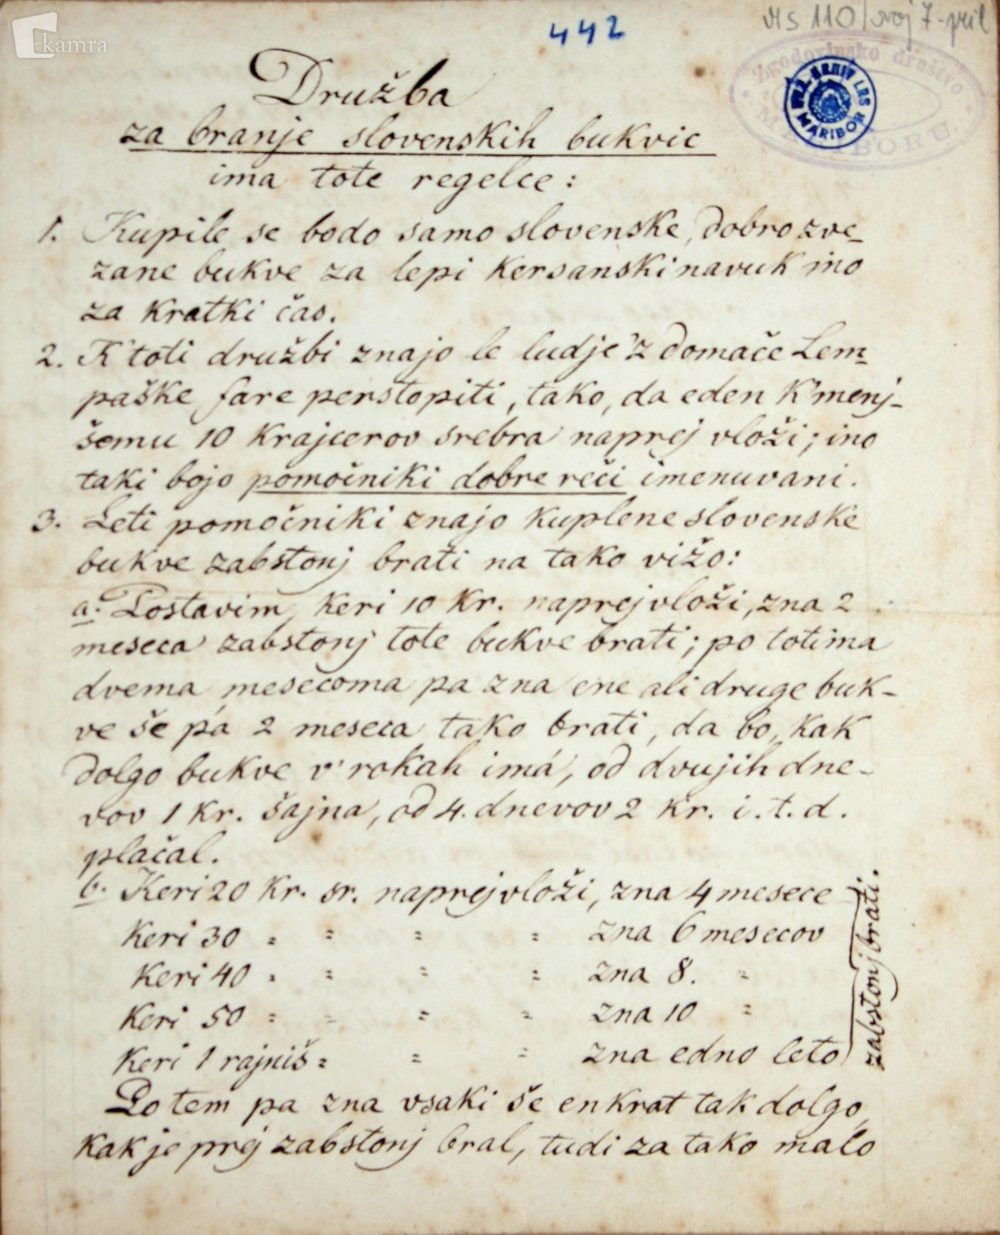 kamra
442
Ms 110/svoj 7-pril
Zgodovinsko društvo
MARIBORU
MARIBOR
Družba
za branje slovenskih bukvic
ima tote regelce:
1. Kupile se bodo samo slovenske, dobro zve-
zane bukve za lepi kersanski navuk ino
za kratki čas.
2. K' toti družbi znajo le ludje 'z domače Lem-
paške fare perstopiti, tako, da eden k' menj-
šemu 10 krajcerov srebra naprej vloži; ino
taki bojo pomočniki dobre reči imenuvani.
3. Leti pomočniki znajo kuplene slovenske
bukve zabstonj brati na tako vižo:
a. Postavim, keri 10 kr. naprej vloži, zna 2
meseca zabstonj tote bukve brati; po totima
dvema mesecoma pa zna ene ali druge buk-
ve še pa 2 meseca tako brati, da bo, kak
dolgo bukve v' rokah imá, od dvujih dne-
vov 1 kr. šajna, od 4. dnevov 2 kr. i. t. d.
plačal.
b. Keri 20 kr. sr. naprej vloži, zna 4 mesece
keri 30 = = = = zna 6 mesecov
keri 40 = = = = zna 8. =
keri 50 = = = = zna 10 =
keri 1 rajniš = = = zna edno leto
zabstonj brati.
Po tem pa zna vsaki še enkrat tak dolgo,
kak je prej zabstonj bral, tudi za tako malo